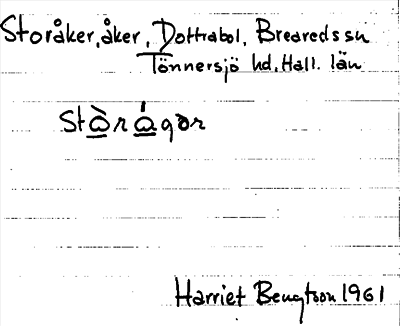 Storåker, åker, Dottrabol, Breareds sn
Tönnersjö hd. Hall. län
Stò̲rá̲gər
Harriet Bengtson 1961